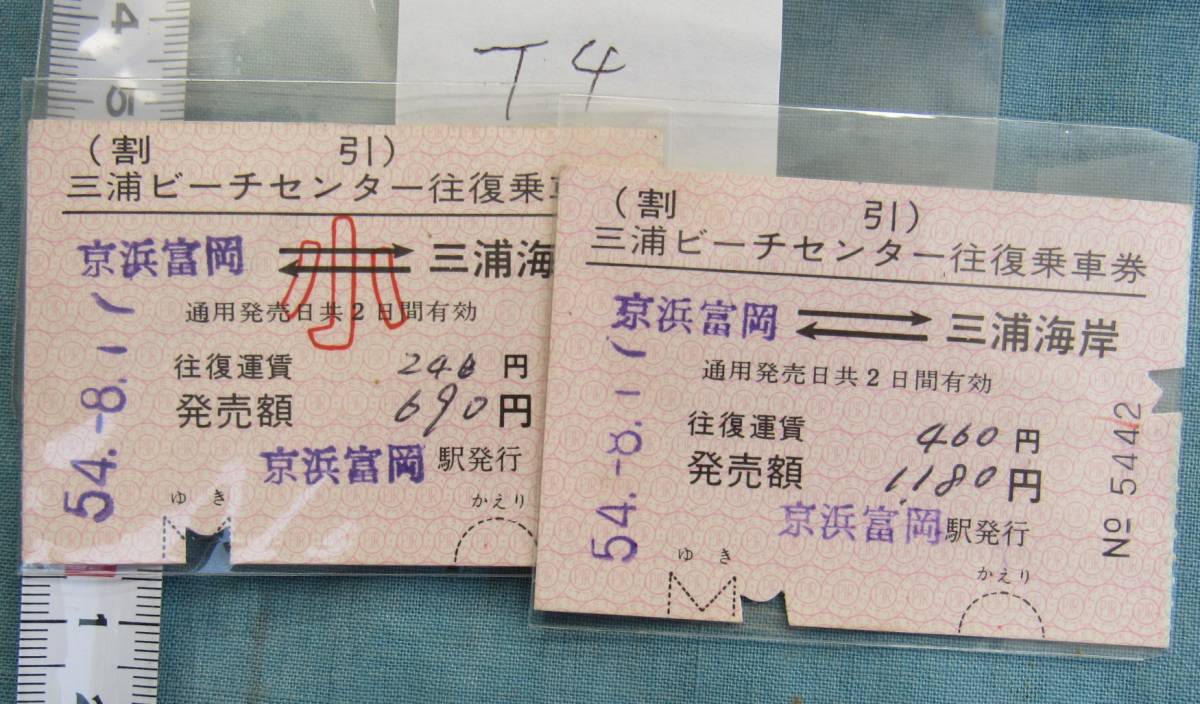 T4
4
5
(割 引)
三浦ビーチセンター往復乗車
小
京浜富岡 三浦海
通用発売日共2日間有効
往復運賃 240 円
発売額 690円
京浜富岡 駅発行
ゆき かえり
54.-8.1(
(割 引)
三浦ビーチセンター往復乗車券
京浜富岡 三浦海岸
通用発売日共2日間有効
往復運賃 460 円
発売額 1180円
京浜富岡 駅発行
ゆき かえり
54.-8.1(
№ 5442
1
2